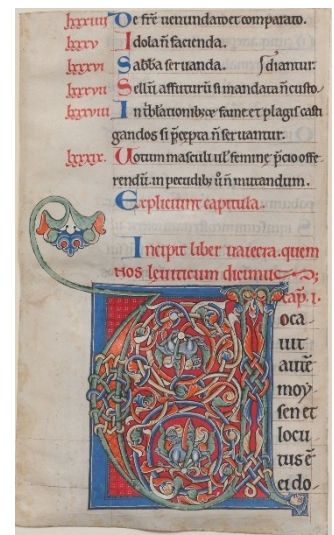 lxxxiiii De fr̄e uenundato et comparato.
lxxxv Idola n̄ facienda.
lxxxvi Sabb̄a seruanda. ſdiantur.
lxxxvii Sellū affuturū si mandata n̄ custo-
lxxxviii In t̄blationibꝫ fame et plagis casti
gandos si p̄cepta n̄ seruantur.
lxxxix. Uotum masculi ul̓ femine p̄cio offe-
rendū. in pecudibꝫ ū n̄ mutandum.
Expliciunt capitula.
Incipit liber uaiecra. quem
nos leuiticum dicimus;
cap̄. i.
Voca
uit
autē
moy
sen et
locu
tus ē
ei do